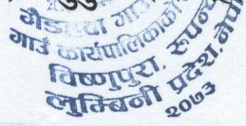 गैडहवा गाउँ
गाउँ कार्यपालिकाको
विष्णुपुरा, रुपन्दे
लुम्बिनी प्रदेश, नेपा
२०७३